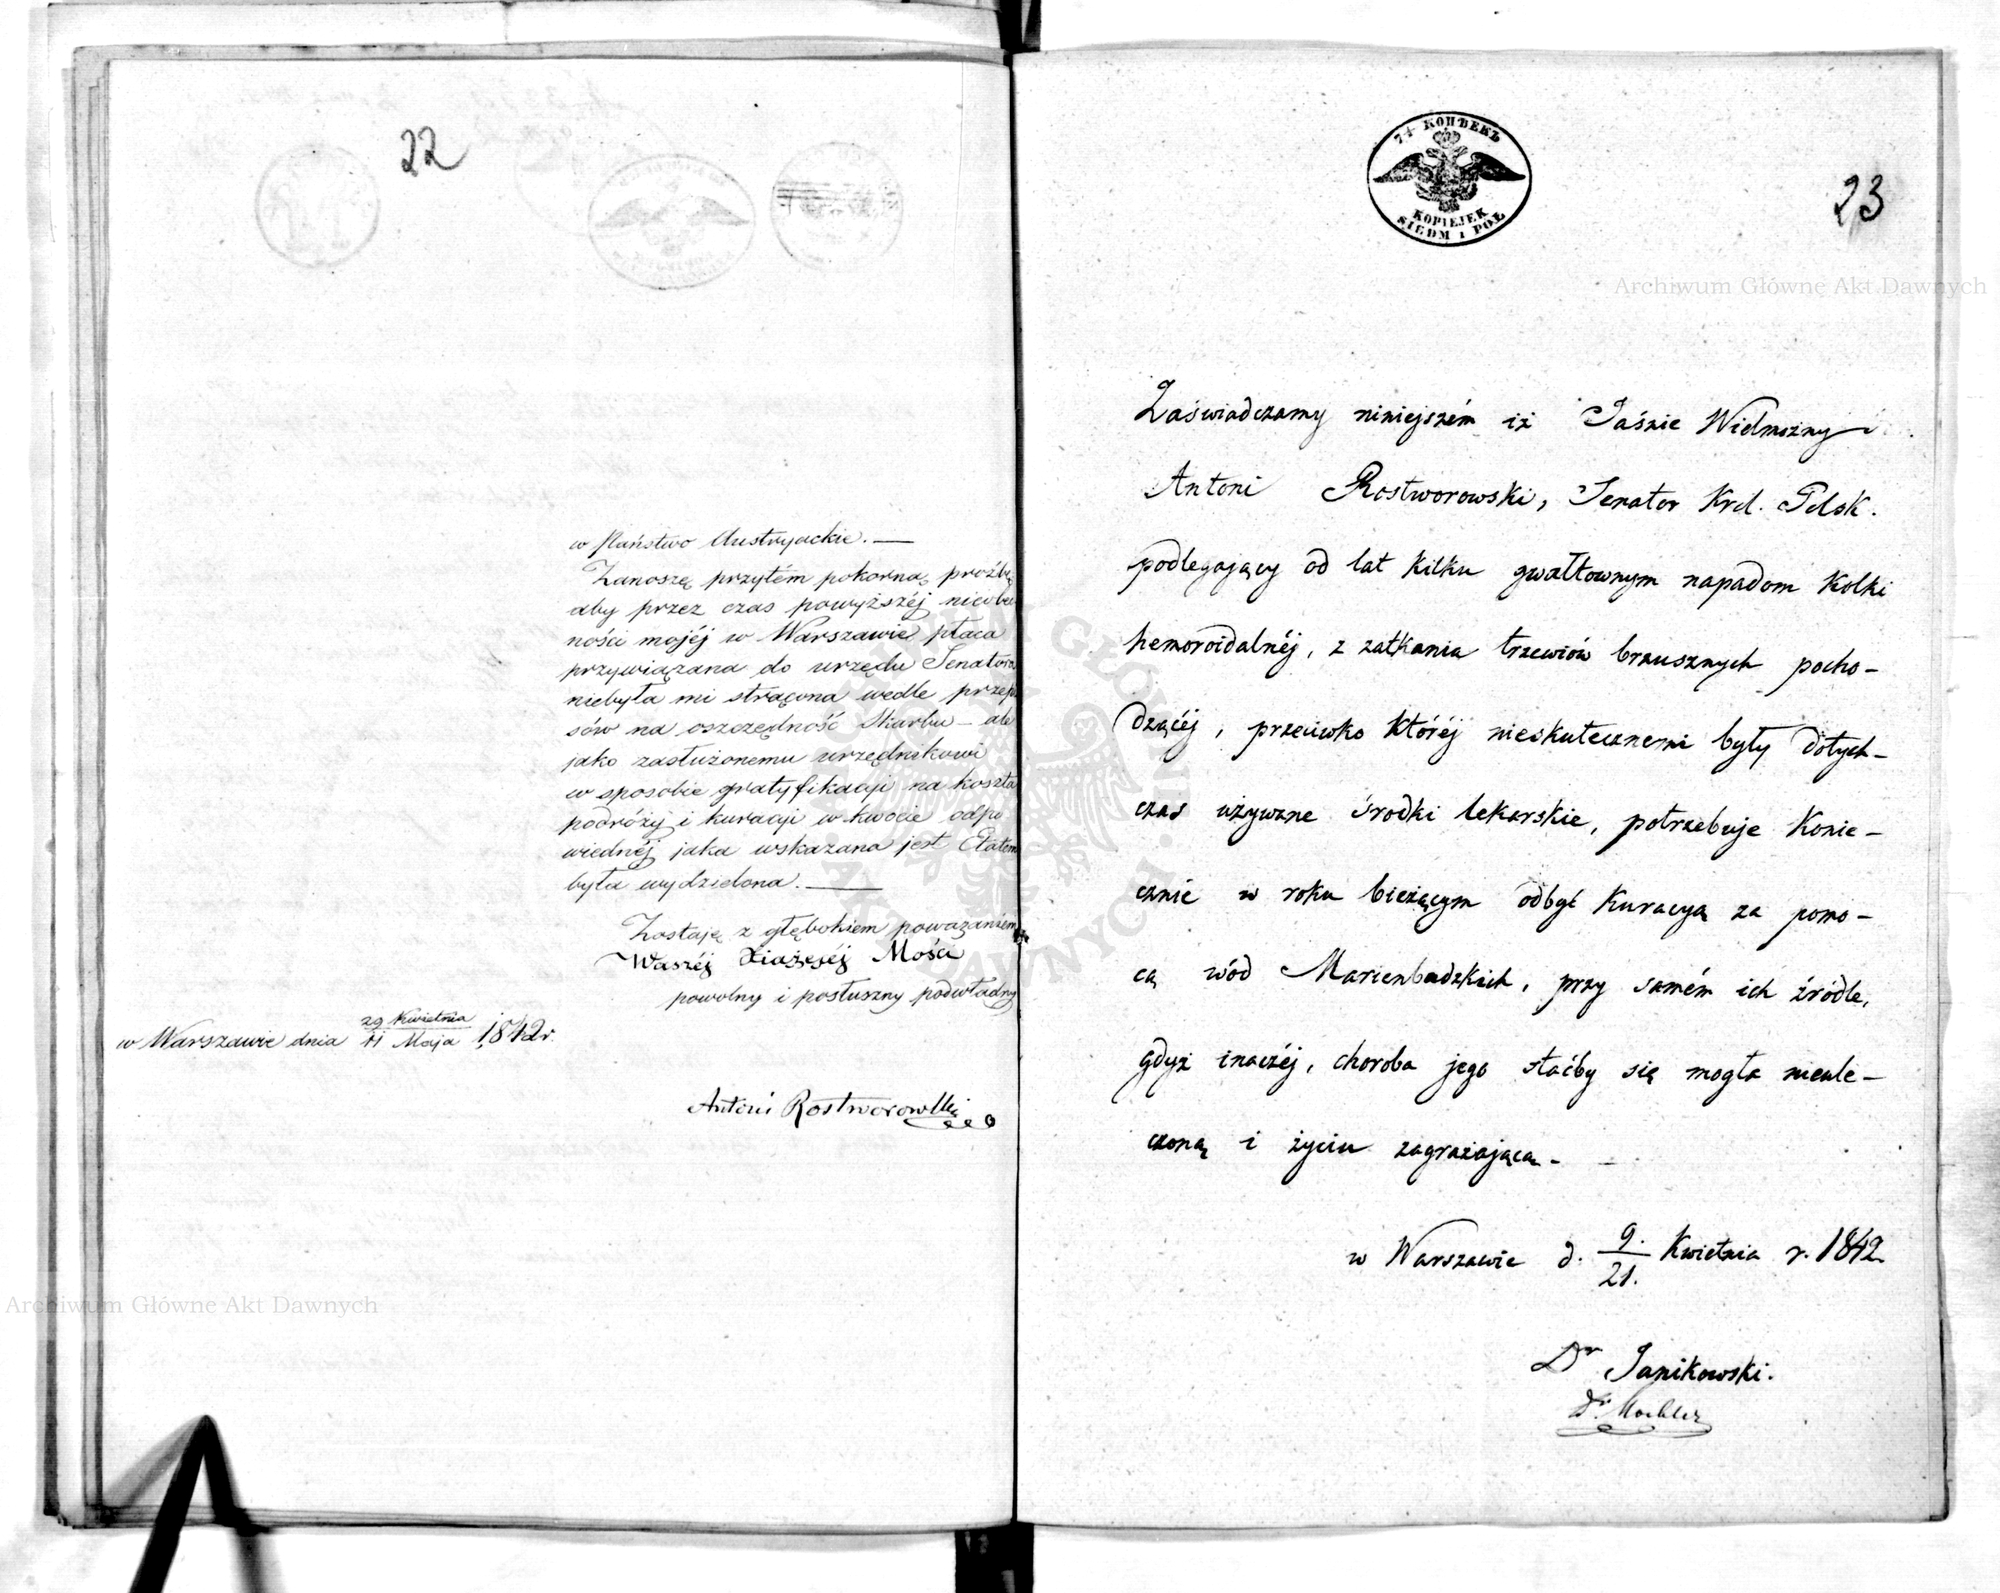 22
w Państwo Austryackie. —
Zanoszę przytém pokorną proźbę
aby przez czas powyższéj nieobec
ności mojéj w Warszawie, płaca
przywiązana do urzędu Senatora
niebyła mi strącona wedle przepi
sów na oszczędność Skarbu — ale
jako zasłużonemu urzędnikowi
w sposobie gratyfikacji na koszta
podróży i kuracji w kwocie odpo
wiednéj jaka wskazana jest Etatem
była wydzielona. —
Zostaję z głębokiem poważaniem
Waszéj Xiążęcéj Mości
powolny i posłuszny podwładny
w Warszawie dnia 29 Kwietnia / 11 Maja 1842 r.
Antoni Rostworowski
7½ КОПѢЕКЪ
KOPIEJEK
SIEDM i PÓŁ
23
Archiwum Główne Akt Dawnych
Zaświadczamy niniejszém iż Jaśnie Wielmożny
Antoni Rostworowski, Senator Król. Polsk.
podlegający od lat kilku gwałtownym napadom kolki
hemoroidalnéj, z zatkania trzewiów brzusznych pocho-
dzącéj, przeciwko któréj nieskutecznemi były dotych-
czas używane środki lekarskie, potrzebuje konie-
cznie w roku bieżącym odbyć kuracyą za pomo-
cą wód Marienbadzkich, przy samém ich źródle,
gdyż inaczéj, choroba jego staćby się mogła nieule-
czoną i życiu zagrażającą. —
w Warszawie d. 9./21. Kwietnia r. 1842
Dr Janikowski.
Dr.
Archiwum Główne Akt Dawnych